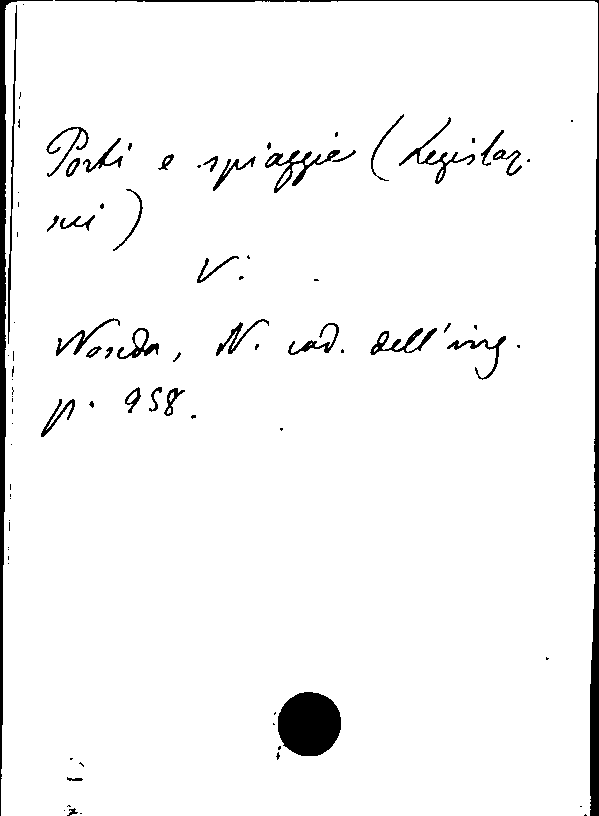 Porti e spiaggie (Legislaz.
sui)
V.
Noseda, N. cod. dell'ing.
p. 958.